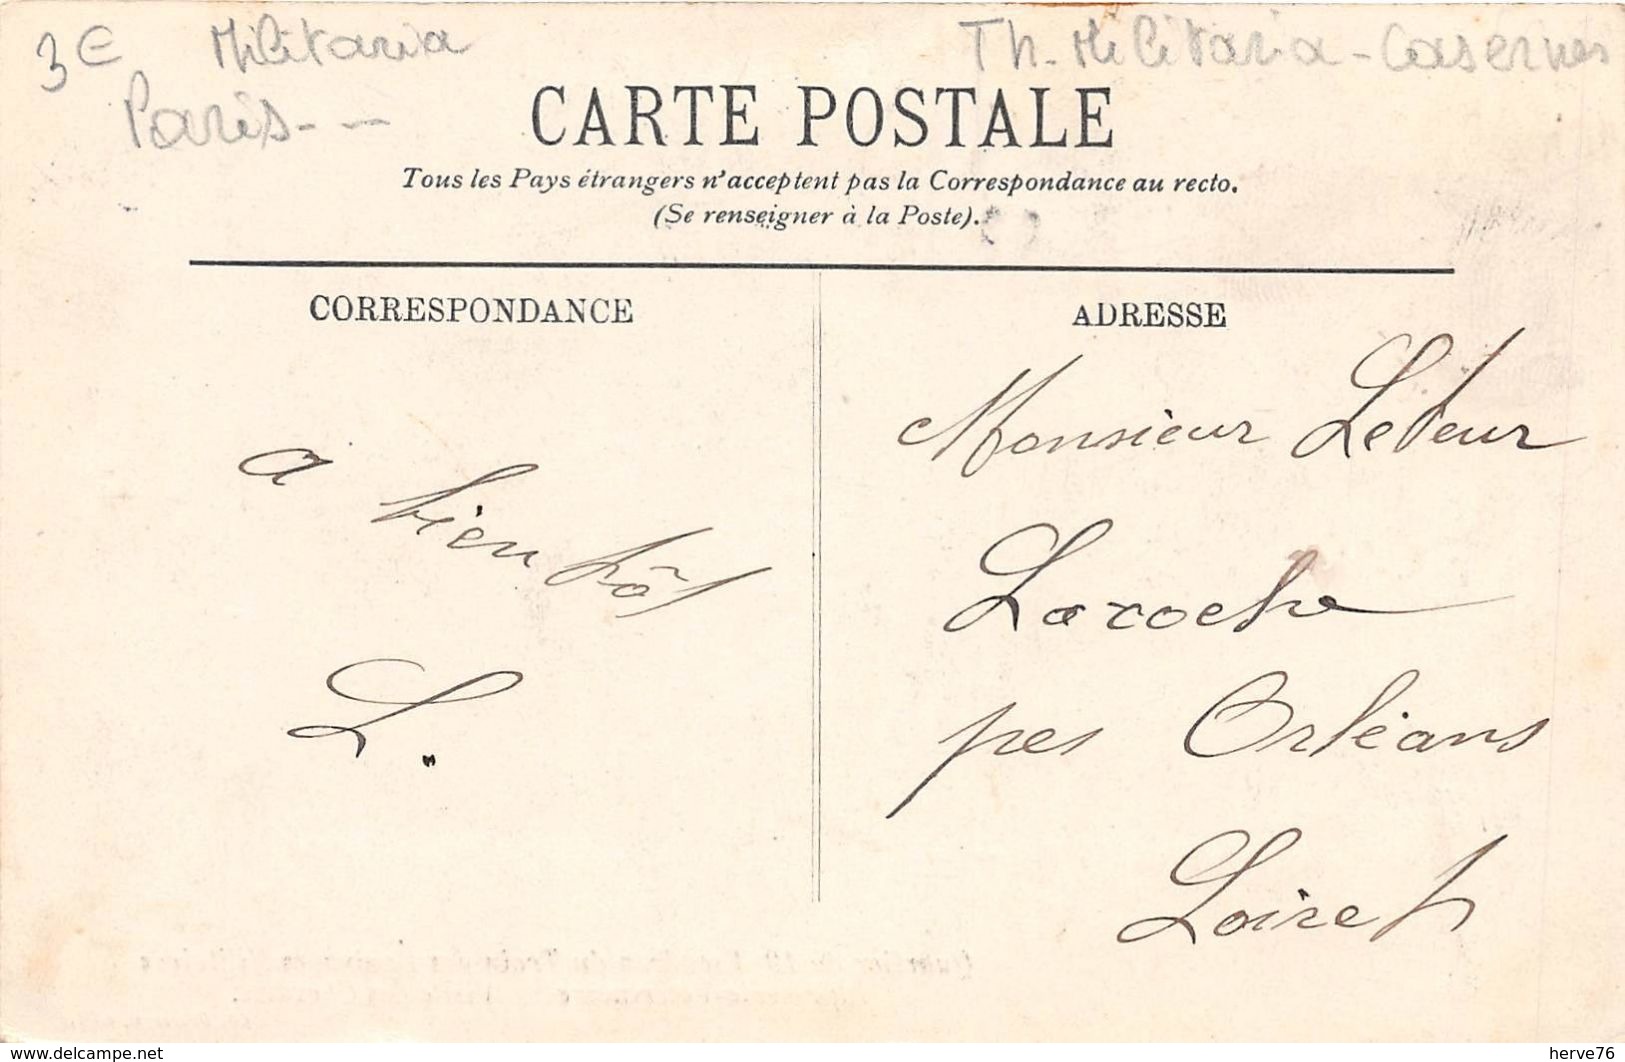 3€ Militaria
Th. Militaria - Casernes
Paris - -
CARTE POSTALE
Tous les Pays étrangers n'acceptent pas la Correspondance au recto.
(Se renseigner à la Poste).
CORRESPONDANCE
ADRESSE
a bientôt
L.
Monsieur Leteur
Laroche
pes Orléans
Loiret
www.delcampe.net
herve76